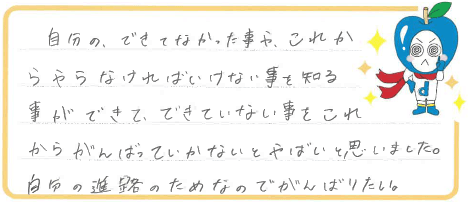 自分の、できてなかった事や、これか
らやらなければいけない事を知る
事ができて、できていない事をこれ
からがんばっていかないとやばいと思いました。
自分の進路のためなのでがんばりたい。
d